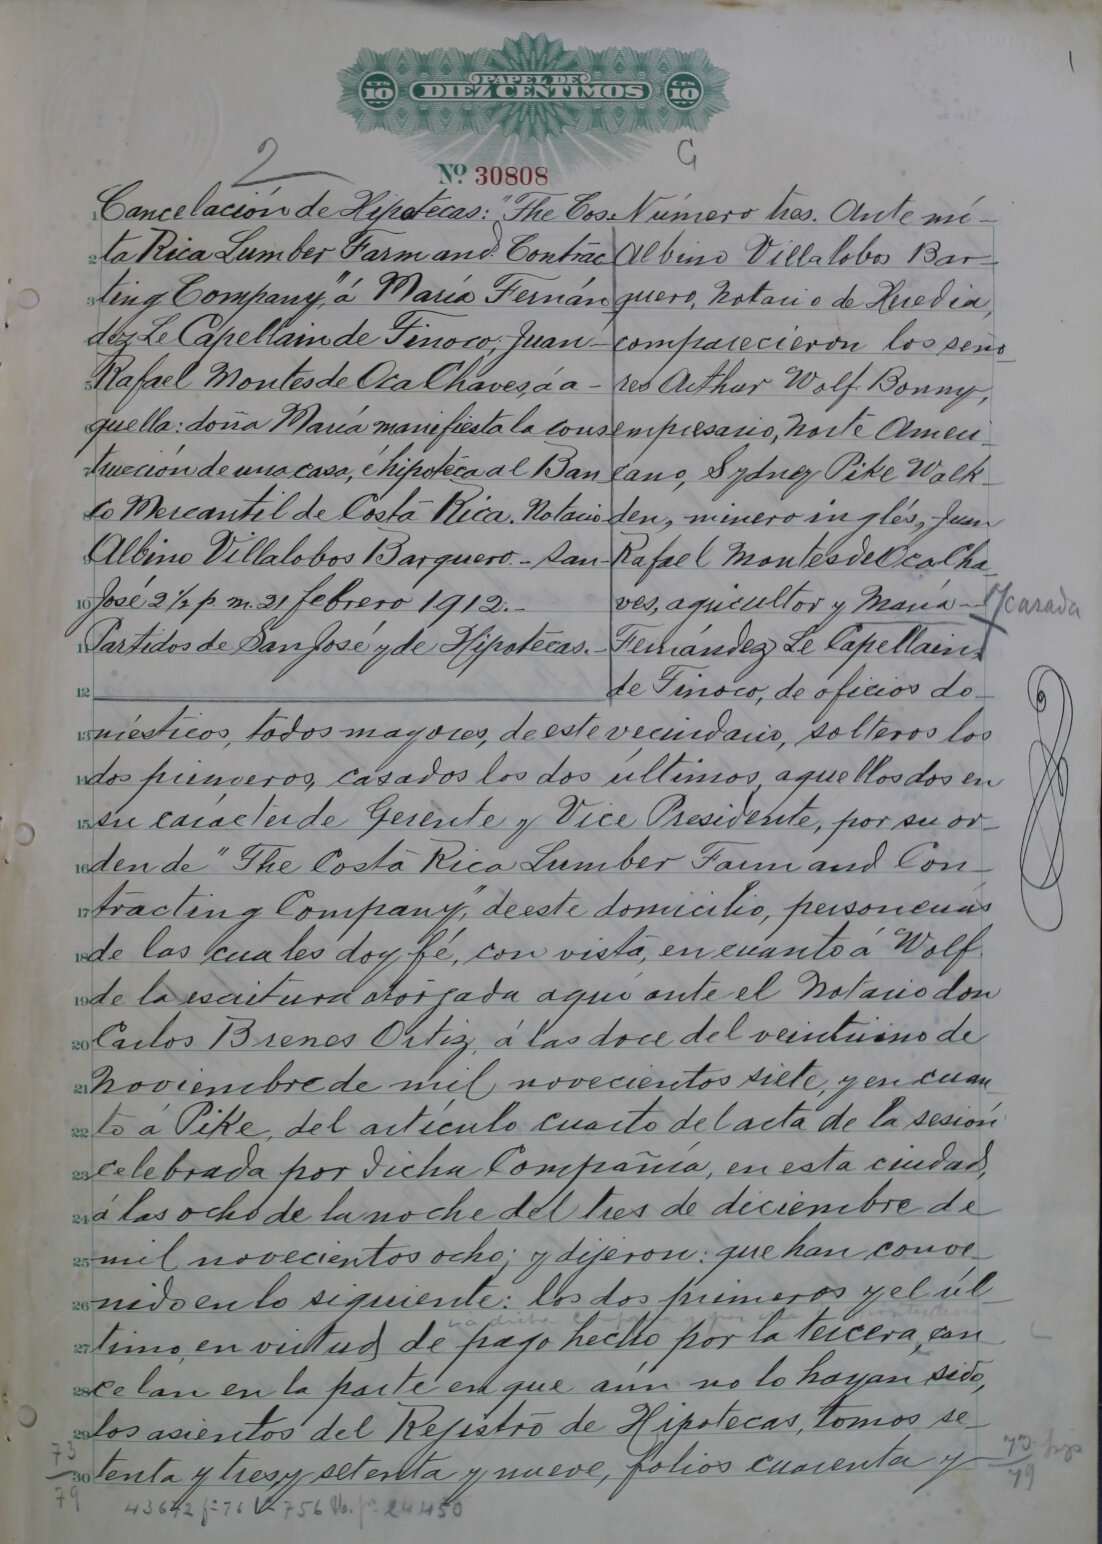 1
CTS 10 PAPEL DE DIEZ CENTIMOS CTS 10
2
G
Nº 30808
1 Cancelación de Hipotecas: "The Cos-
2 ta Rica Lumber Farm and Contrac
3 ting Company," á María Fernán
4 dez Le Capellain de Tinoco; Juan
5 Rafael Montes de Oca Chaves, á a-
6 quella: doña María manifiesta la cons
7 trucción de una casa, é hipotéca al Ban
8 co Mercantil de Costa Rica. Notario
9 Albino Villalobos Barquero.- San
10 José 2 1/2 p. m. 21 febrero 1912.-
11 Partidos de San José y de Hipotecas.-
12
Número tres. Ante mí-
Albino Villalobos Bar-
quero, Notario de Heredia,
comparecieron los seño
res Arthur Wolf Bonny,
empresario, Norte Ameri-
cano, Sydney Pike Walk-
den, minero inglés, Juan
Rafael Montes de Oca Cha-
ves, agricultor y María
casada
Fernández Le Capellain
de Tinoco, de oficios do-
13 mésticos, todos mayores, de este vecindario, solteros los
14 dos primeros, casados los dos últimos, aquellos dos en
15 su carácter de Gerente y Vice Presidente, por su or-
16 den de "The Costa Rica Lumber Farm and Con-
17 tracting Company," de este domicilio, personerías
18 de las cuales doy fé, con vista, en cuanto á Wolf
19 de la escritura otorgada aquí ante el Notario don
20 Carlos Brenes Ortiz, á las doce del veintiuno de
21 Noviembre de mil novecientos siete, y en cuan
22 to á Pike, del artículo cuarto del acta de la sesión
23 celebrada por dicha Compañía, en esta ciudad,
24 á las ocho de la noche del tres de diciembre de
25 mil novecientos ocho; y dijeron: que han conve-
26 nido en lo siguiente: los dos primeros y el úl-
27 timo, en virtud de pago hecho por la tercera, can
28 celan en la parte en que aún no lo hayan sido,
29 los asientos del Registro de Hipotecas, tomos se-
30 tenta y tres, y setenta y nueve, folios cuarenta y
73
79
73
79